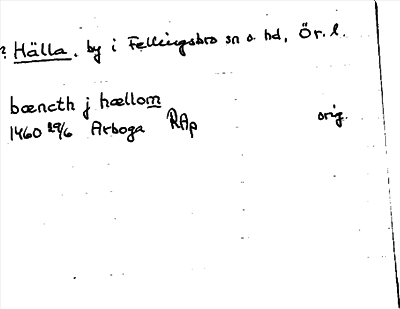 ? Hälla. by i Fellingsbro sn o. hd, Ör. l.
bæncth j hællom
1460 29/6 Arboga RAp orig.